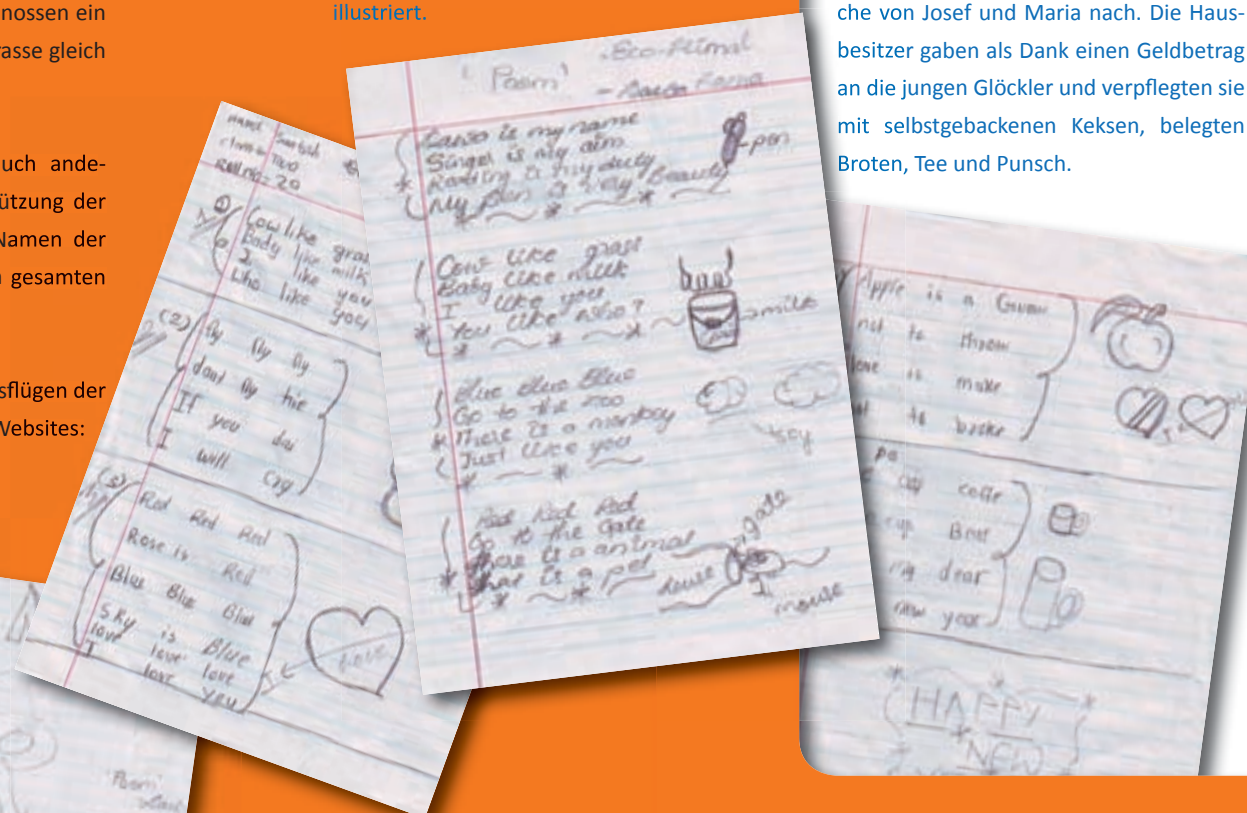 nossen ein
rasse gleich
uch ande-
ützung der
Namen der
gesamten
sflügen der
Websites:
illustriert.
che von Josef und Maria nach. Die Haus-
besitzer gaben als Dank einen Geldbetrag
an die jungen Glöckler und verpflegten sie
mit selbstgebackenen Keksen, belegten
Broten, Tee und Punsch.
Roll no = 20
(1) Cow like gras
Baby like milk
I like you
Who like you
(2) fly fly fly
dont fly hie
If you dai
I will cry
(3) Red Red Red
Rose is Red
Blue Blue Blue
Sky is Blue
love love love
I love you
Love
'Poem'
'Poem'
is my name
is my aim
Reading is my duty
My pen is very Beauty
pen
Cow like grass
Baby like milk
I like you
You like who?
milk
Blue Blue Blue
Go to the zoo
There is a monkey
Just like you
Red Red Red
Go to the Gate
There is a animal
That is a pet
gate
mouse
Apple is a
to throw
love is make
to
cup
cup Beer
my dear
new year
HAPPY
NEW